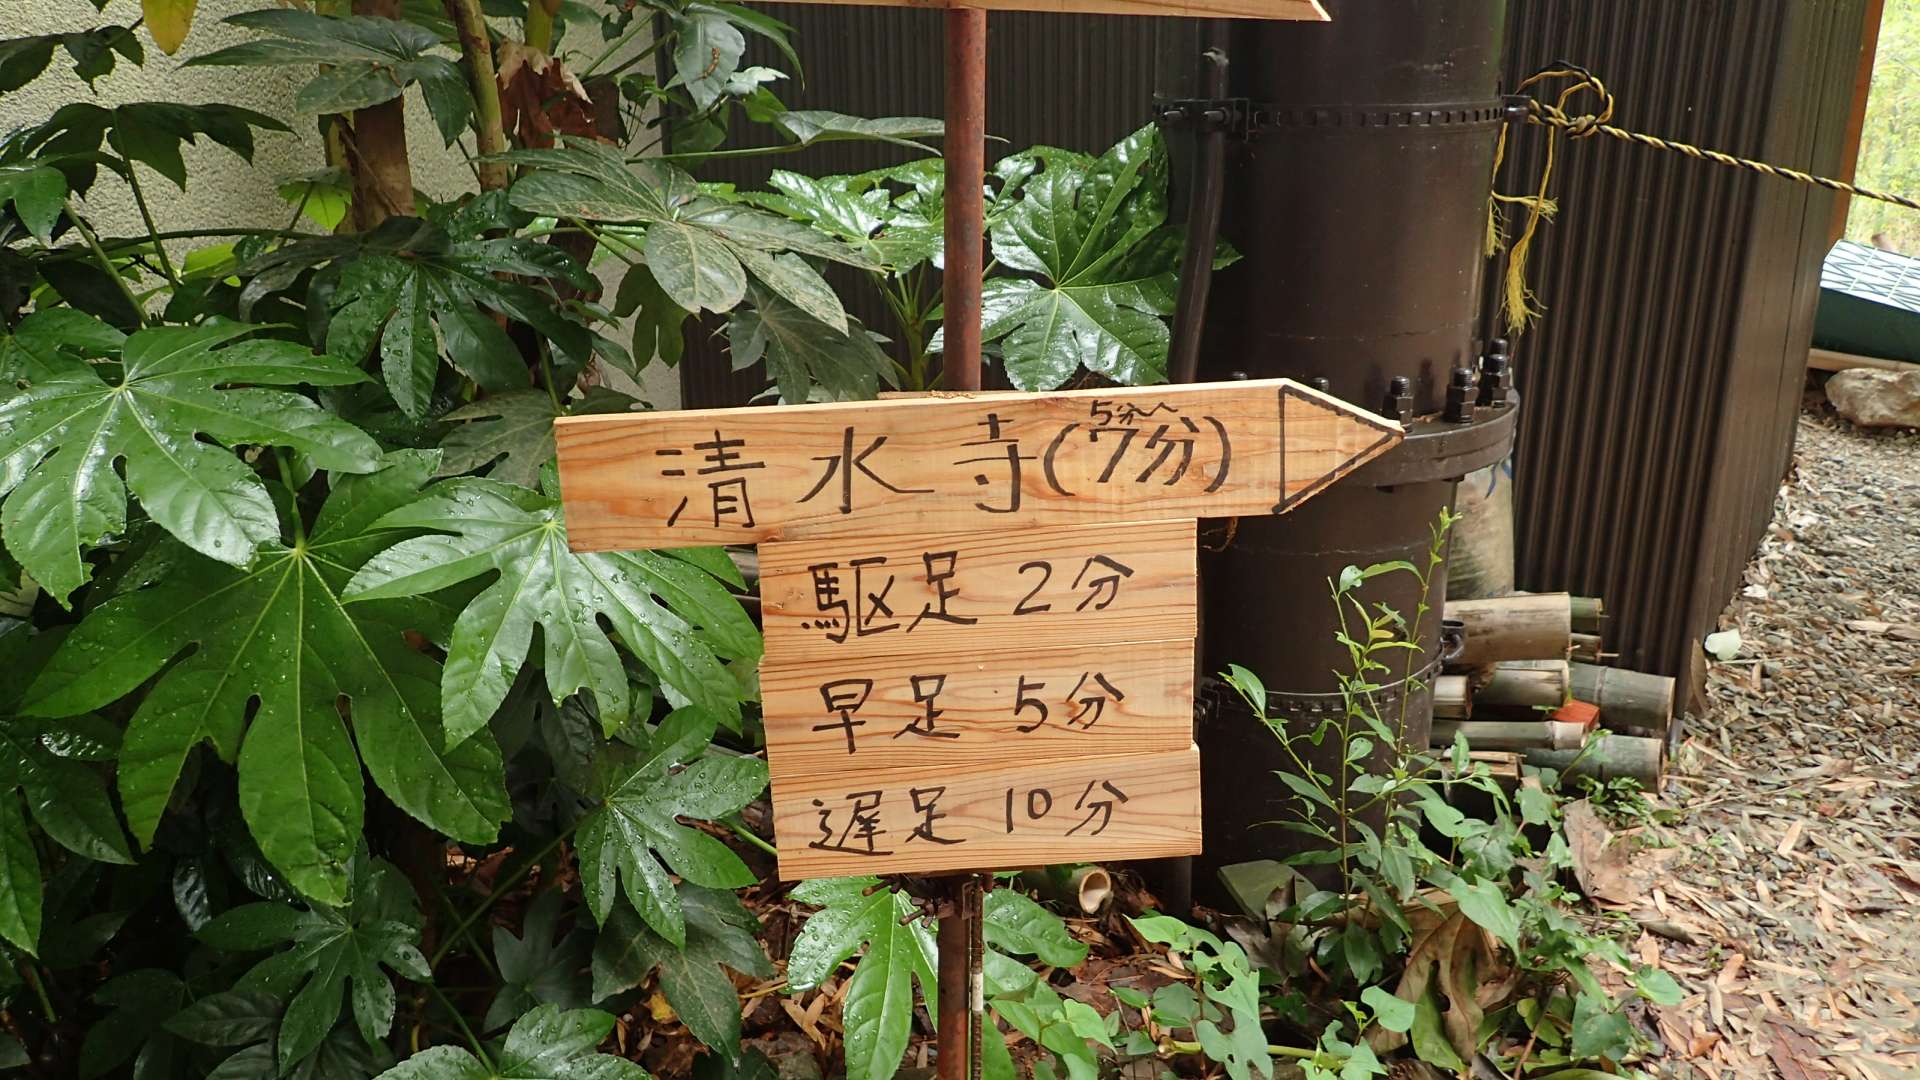 清水寺(7分)
5分〜
駆足 2分
早足 5分
遅足 10分